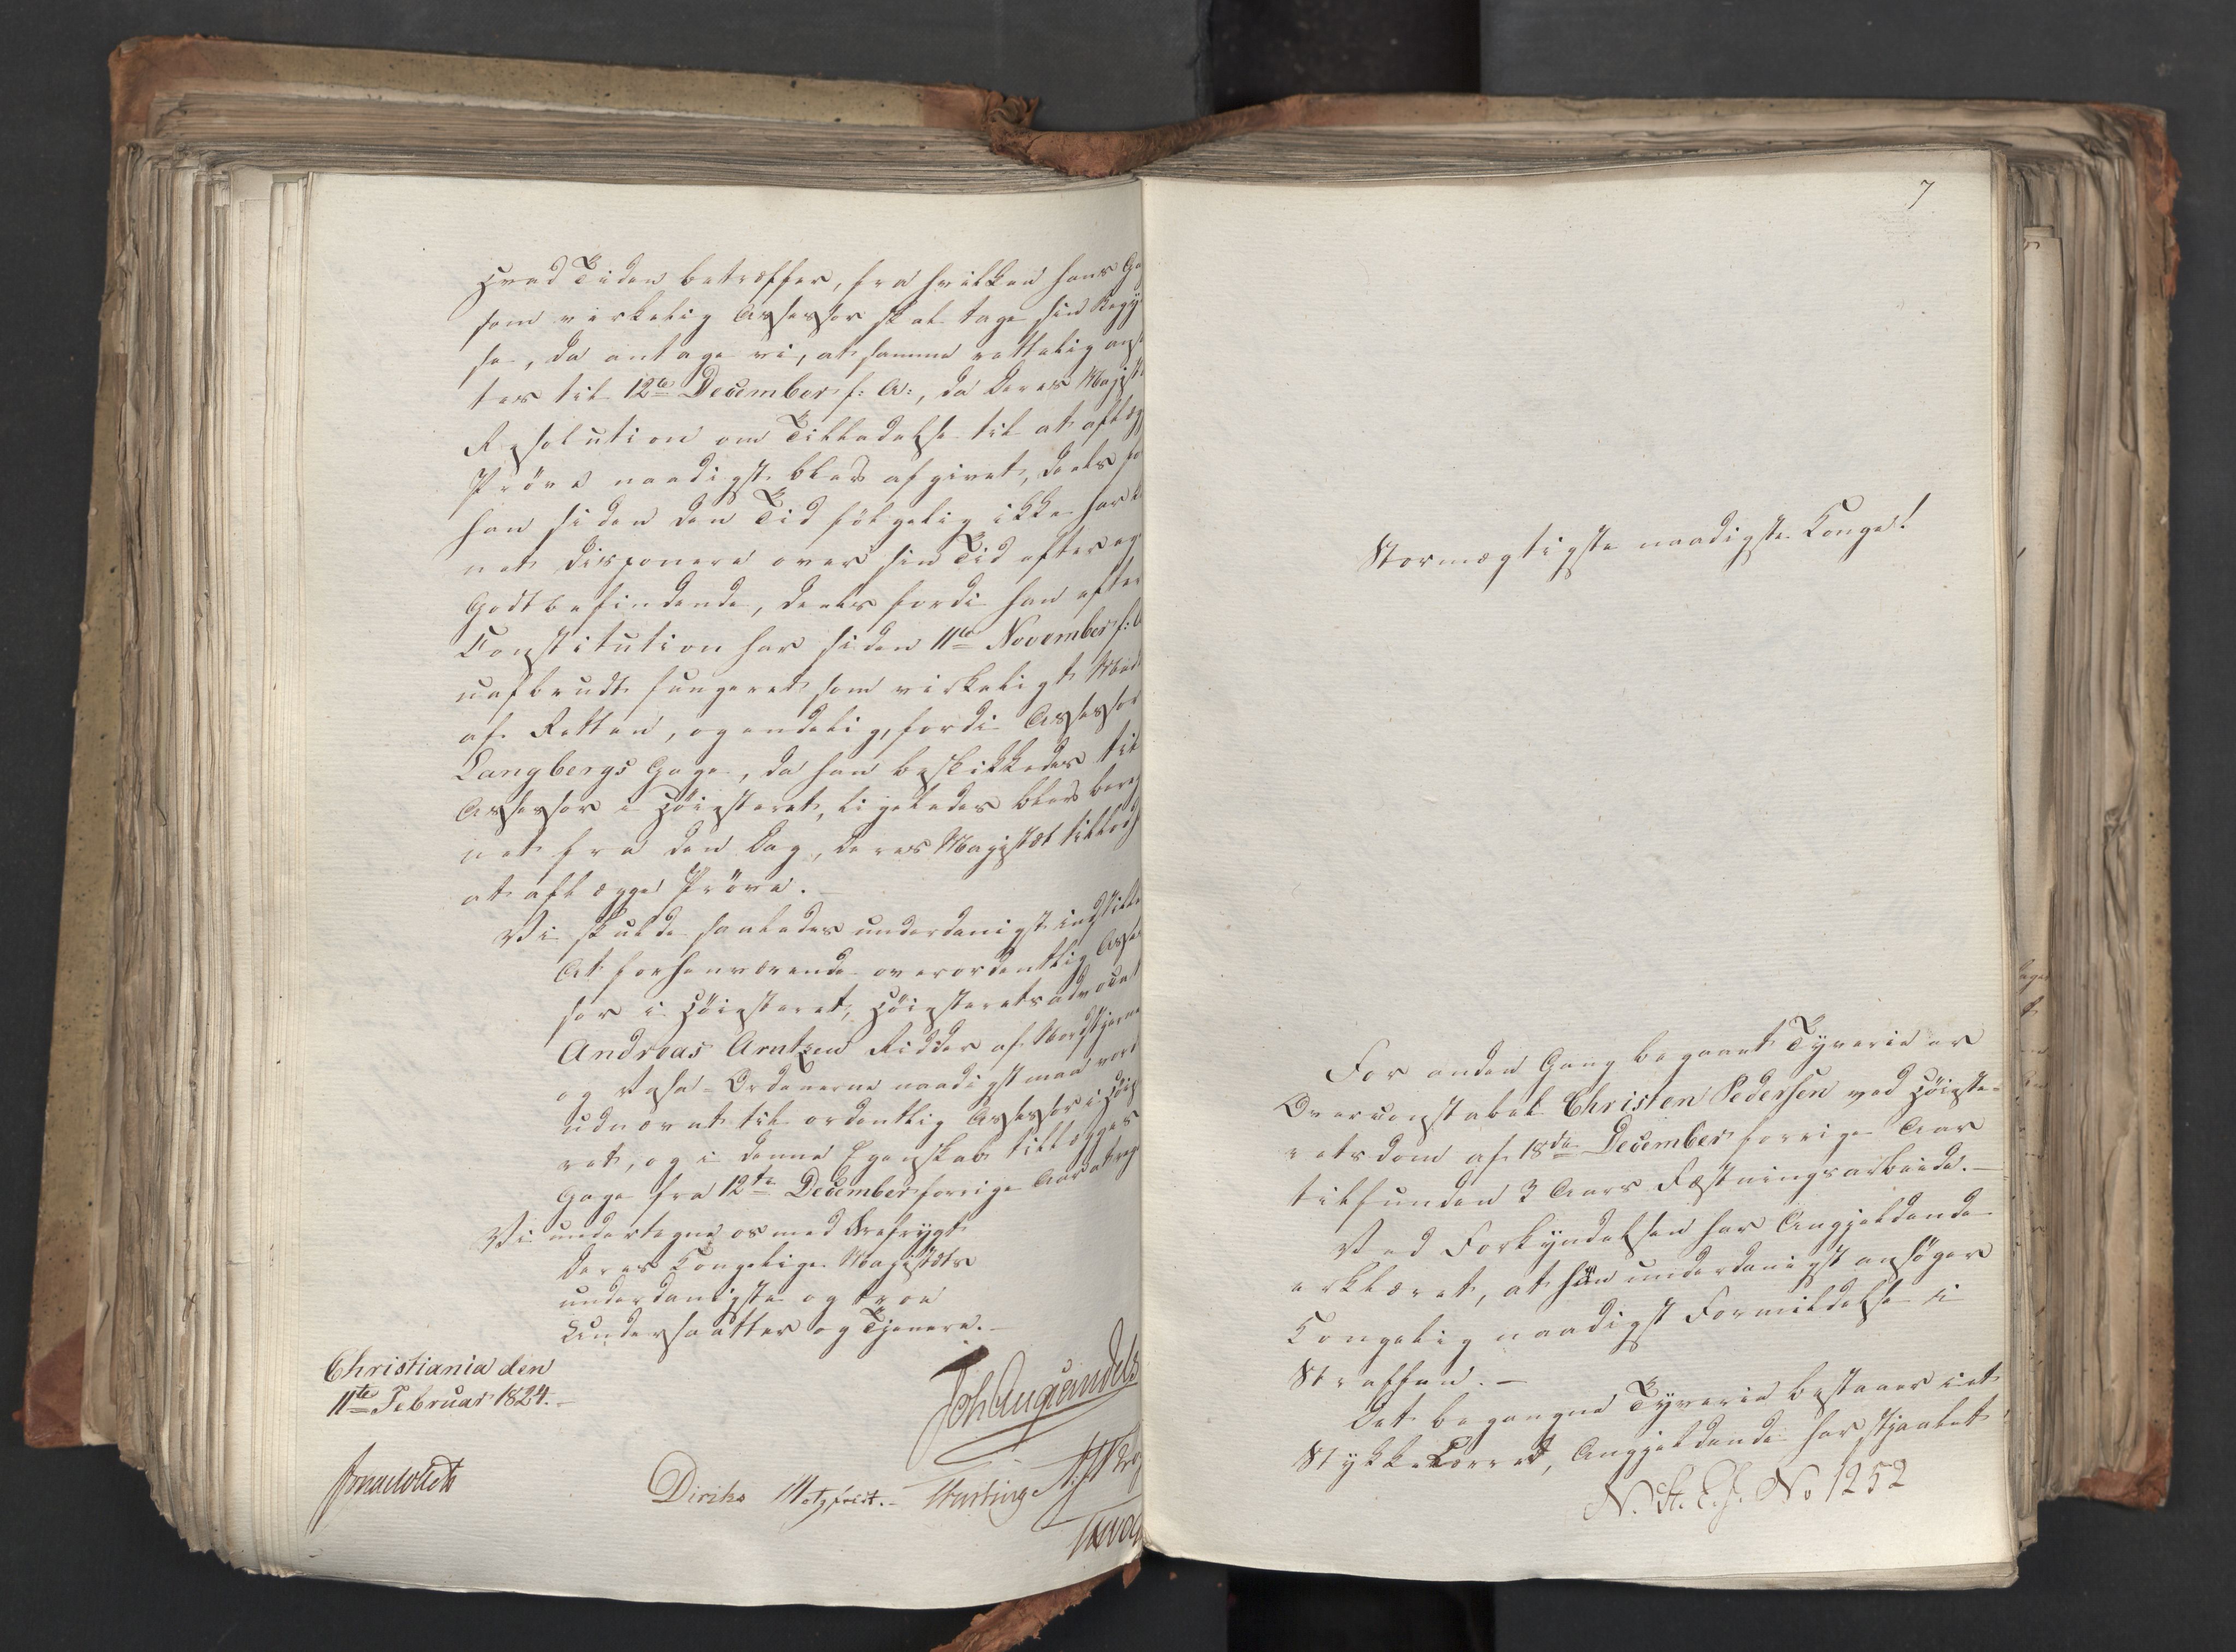 Hvad Tiden betræffer, fra hvilken hans Ga
som virkelig Assessor skal tage sin Begÿ
se, da antage vi, at samme rettelig ans
tes til 12te December f: A:, da Deres Majest
Resolution om Tilladelse til at aflæg
Prøve naadigst blev afgivet, deels fo
han siden den Tid følgelig ikke har k
net disponere over sin Tid efter eg
Godtbefindende, deels fordi han efter
Constitution har siden 11te November f: A
uafbrudt fungeret som virkeligt Med
af Retten, og endelig, fordi Assessor
Langbergs Gage, da han beskikkedes til
Assessor i Høiesteret, ligeledes blev bereg
net fra den Dag, Deres Majestæt tillod
at aflægge Prøve.
Vi skulde saaledes underdanigst indstille
At forhenværende overordentlig Asses
sor i Høiesteret, Høiesteretsadvocat
Andreas Arntzen Ridder af Nordstjerne
og Vasa-Ordenerne naadigst maa vor
udnævnt til ordentlig Assessor i Høies
ret, og i denne Egenskab tillægges
Gage fra 12te December forrige Aar at reg
Vi undertegne os med Ærefrygt
Deres Kongelige Majestæts
underdanigste og troe
Undersaatter og Tjenere.
Christiania den
11te Februar 1824.
Joh Aug Sandels
Diriks Motzfeldt.
7
Stormægtigste naadigste Konge!
For anden Gang begaaet Tyverie er
Overconstabel Christen Pedersen ved Høieste-
retsdom af 18de December forrige Aar
tilfunden 3 Aars Fæstningsarbeide.
Ved Forkyndelsen har Angjeldende
erklæret, at han underdanigst ansøger
Kongelig naadigst Formildelse i
Straffen.
Det begangne Tyverie bestaaer i et
Stykke Lærred, Angjeldende har stjaalet
N. St. E. J. No 1252